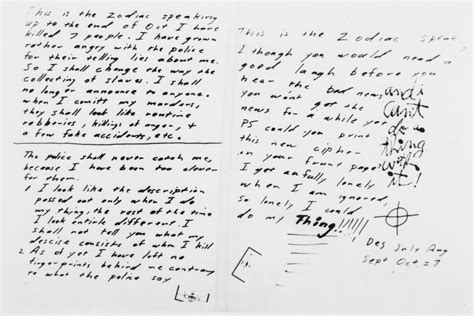 This is the Zodiac speaking
up to the end of Oct I have
killed 7 people. I have grown
rather angry with the police
for their telling lies about me.
So I shall change the way the
collecting of slaves. I shall
no longer announce to anyone.
when I comitt my murders,
they shall look like routine
robberies, killings of anger, +
a few fake accidents, etc.
The police shall never catch me,
because I have been too clever
for them.
1 I look like the description
passed out only when I do
my thing, the rest of the time
I look entirle different. I
shall not tell you what my
descise consists of when I kill
2 As of yet I have left no
fingerprints behind me contrary
to what the police say
This is the Zodiac speaking
I though you would need a
good laugh before you
hear the bad news
you won't get the
news for a while yet
PS could you print
this new cipher
on your front page?
I get awfully lonely
when I am ignored,
so lonely I could
do my Thing!!!!!!
and i
can't
do a
thing
with
it!
Des July Aug
Sept Oct = 7